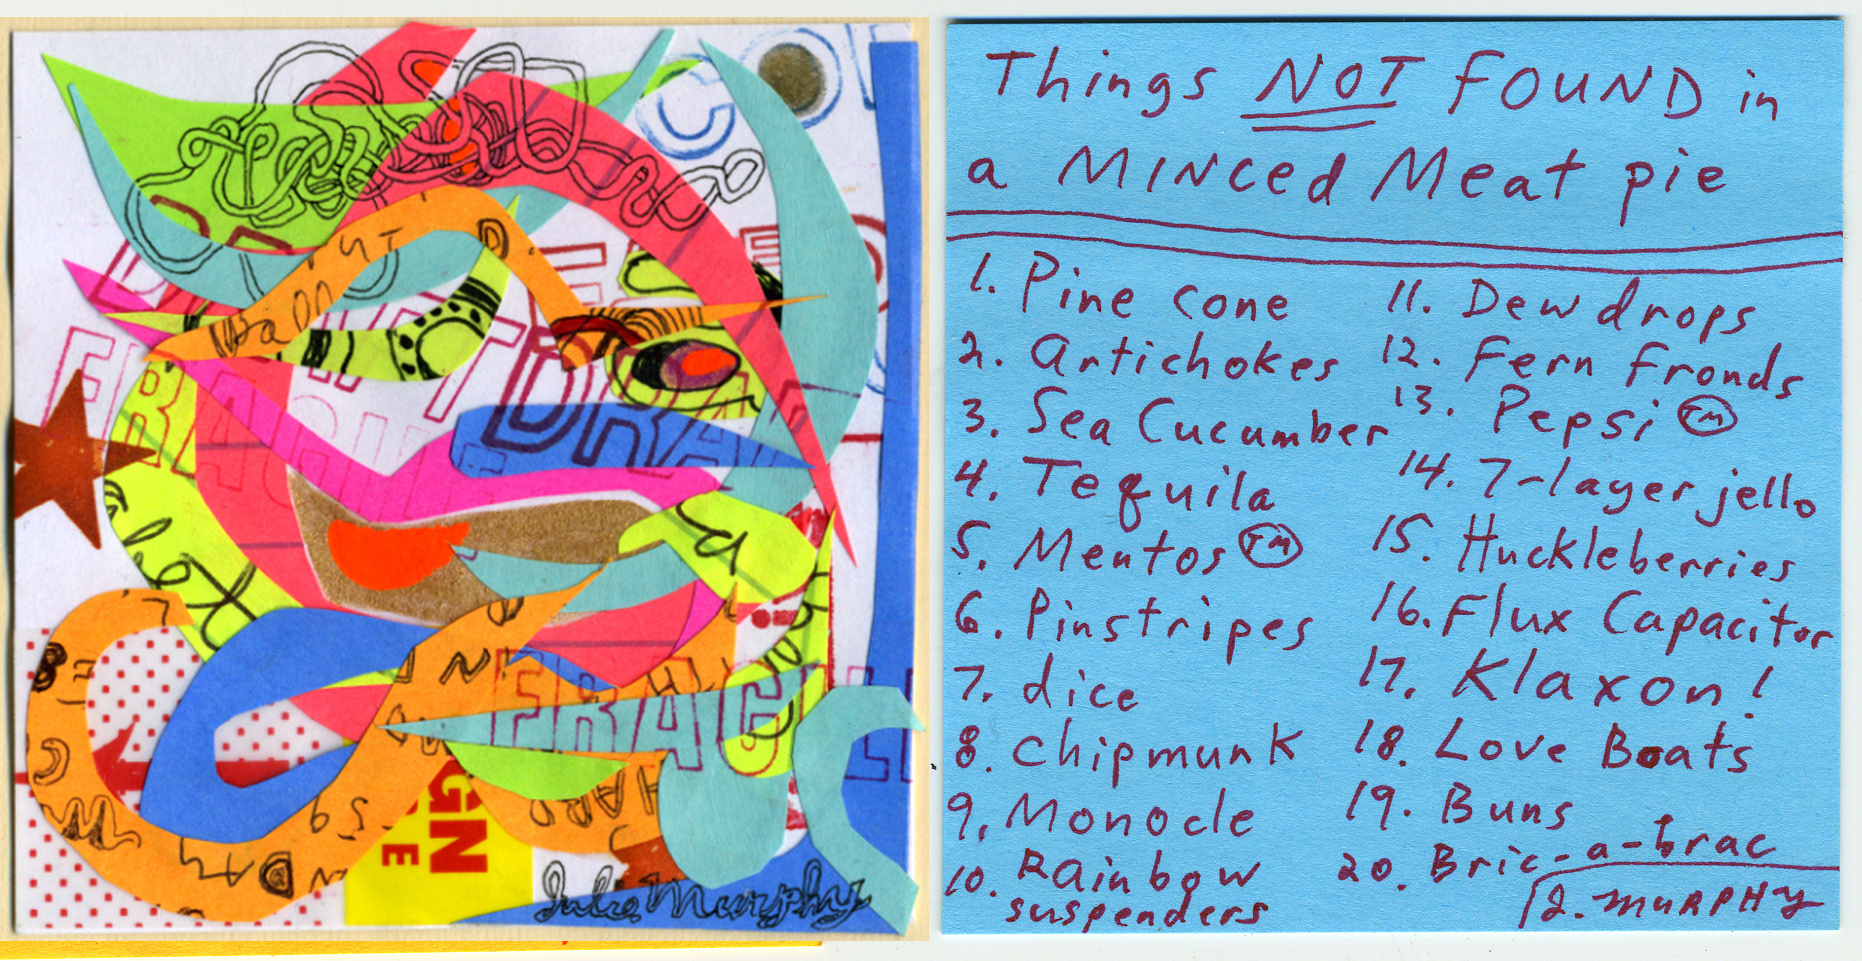 FRAGILE
DRA
FRAGILE
GN
E
HARD
Julie Murphy
Things NOT FOUND in
a MINCed Meat pie
1. Pine cone
2. Artichokes
3. Sea Cucumber
4. Tequila
5. Mentos TM
6. Pinstripes
7. dice
8. chipmunk
9. Monocle
10. Rainbow
suspenders
11. Dew drops
12. Fern fronds
13. Pepsi TM
14. 7-layer jello
15. Huckleberries
16. Flux Capacitor
17. Klaxon!
18. Love Boats
19. Buns
20. Bric-a-brac
J. MURPHY